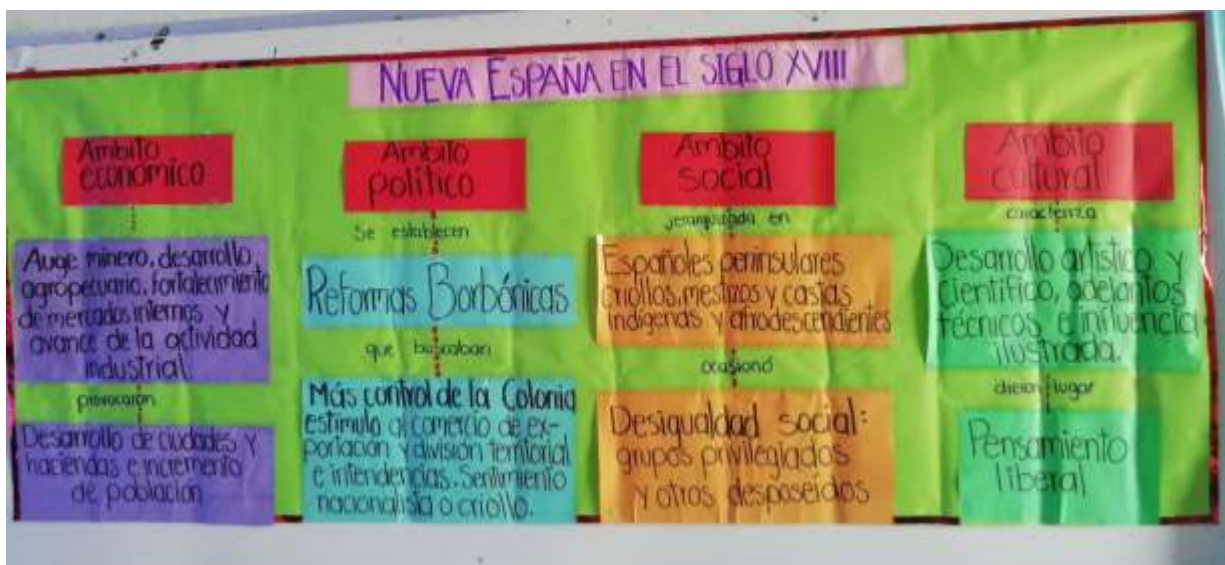 NUEVA ESPAÑA EN EL SIGLO XVIII
Ámbito
económico
Auge minero, desarrollo
agropecuario, fortalecimiento
de mercados internos y
avance de la actividad
industrial.
provocaron
Desarrollo de ciudades y
haciendas e incremento
de población
Ámbito
político
Se establecen
Reformas Borbónicas
que buscaban
Más control de la Colonia
estímulo al comercio de ex-
portación y división territorial
e intendencias. Sentimiento
nacionalista o criollo.
Ámbito
social
jerarquizada en
Españoles peninsulares
criollos, mestizos y castas
indígenas y afrodescendientes
ocasionó
Desigualdad social:
grupos privilegiados
y otros desposeidos
Ámbito
cultural
caracteriza
Desarrollo artístico y
científico, adelantos
técnicos, e influencia
ilustrada.
dieron lugar
Pensamiento
liberal